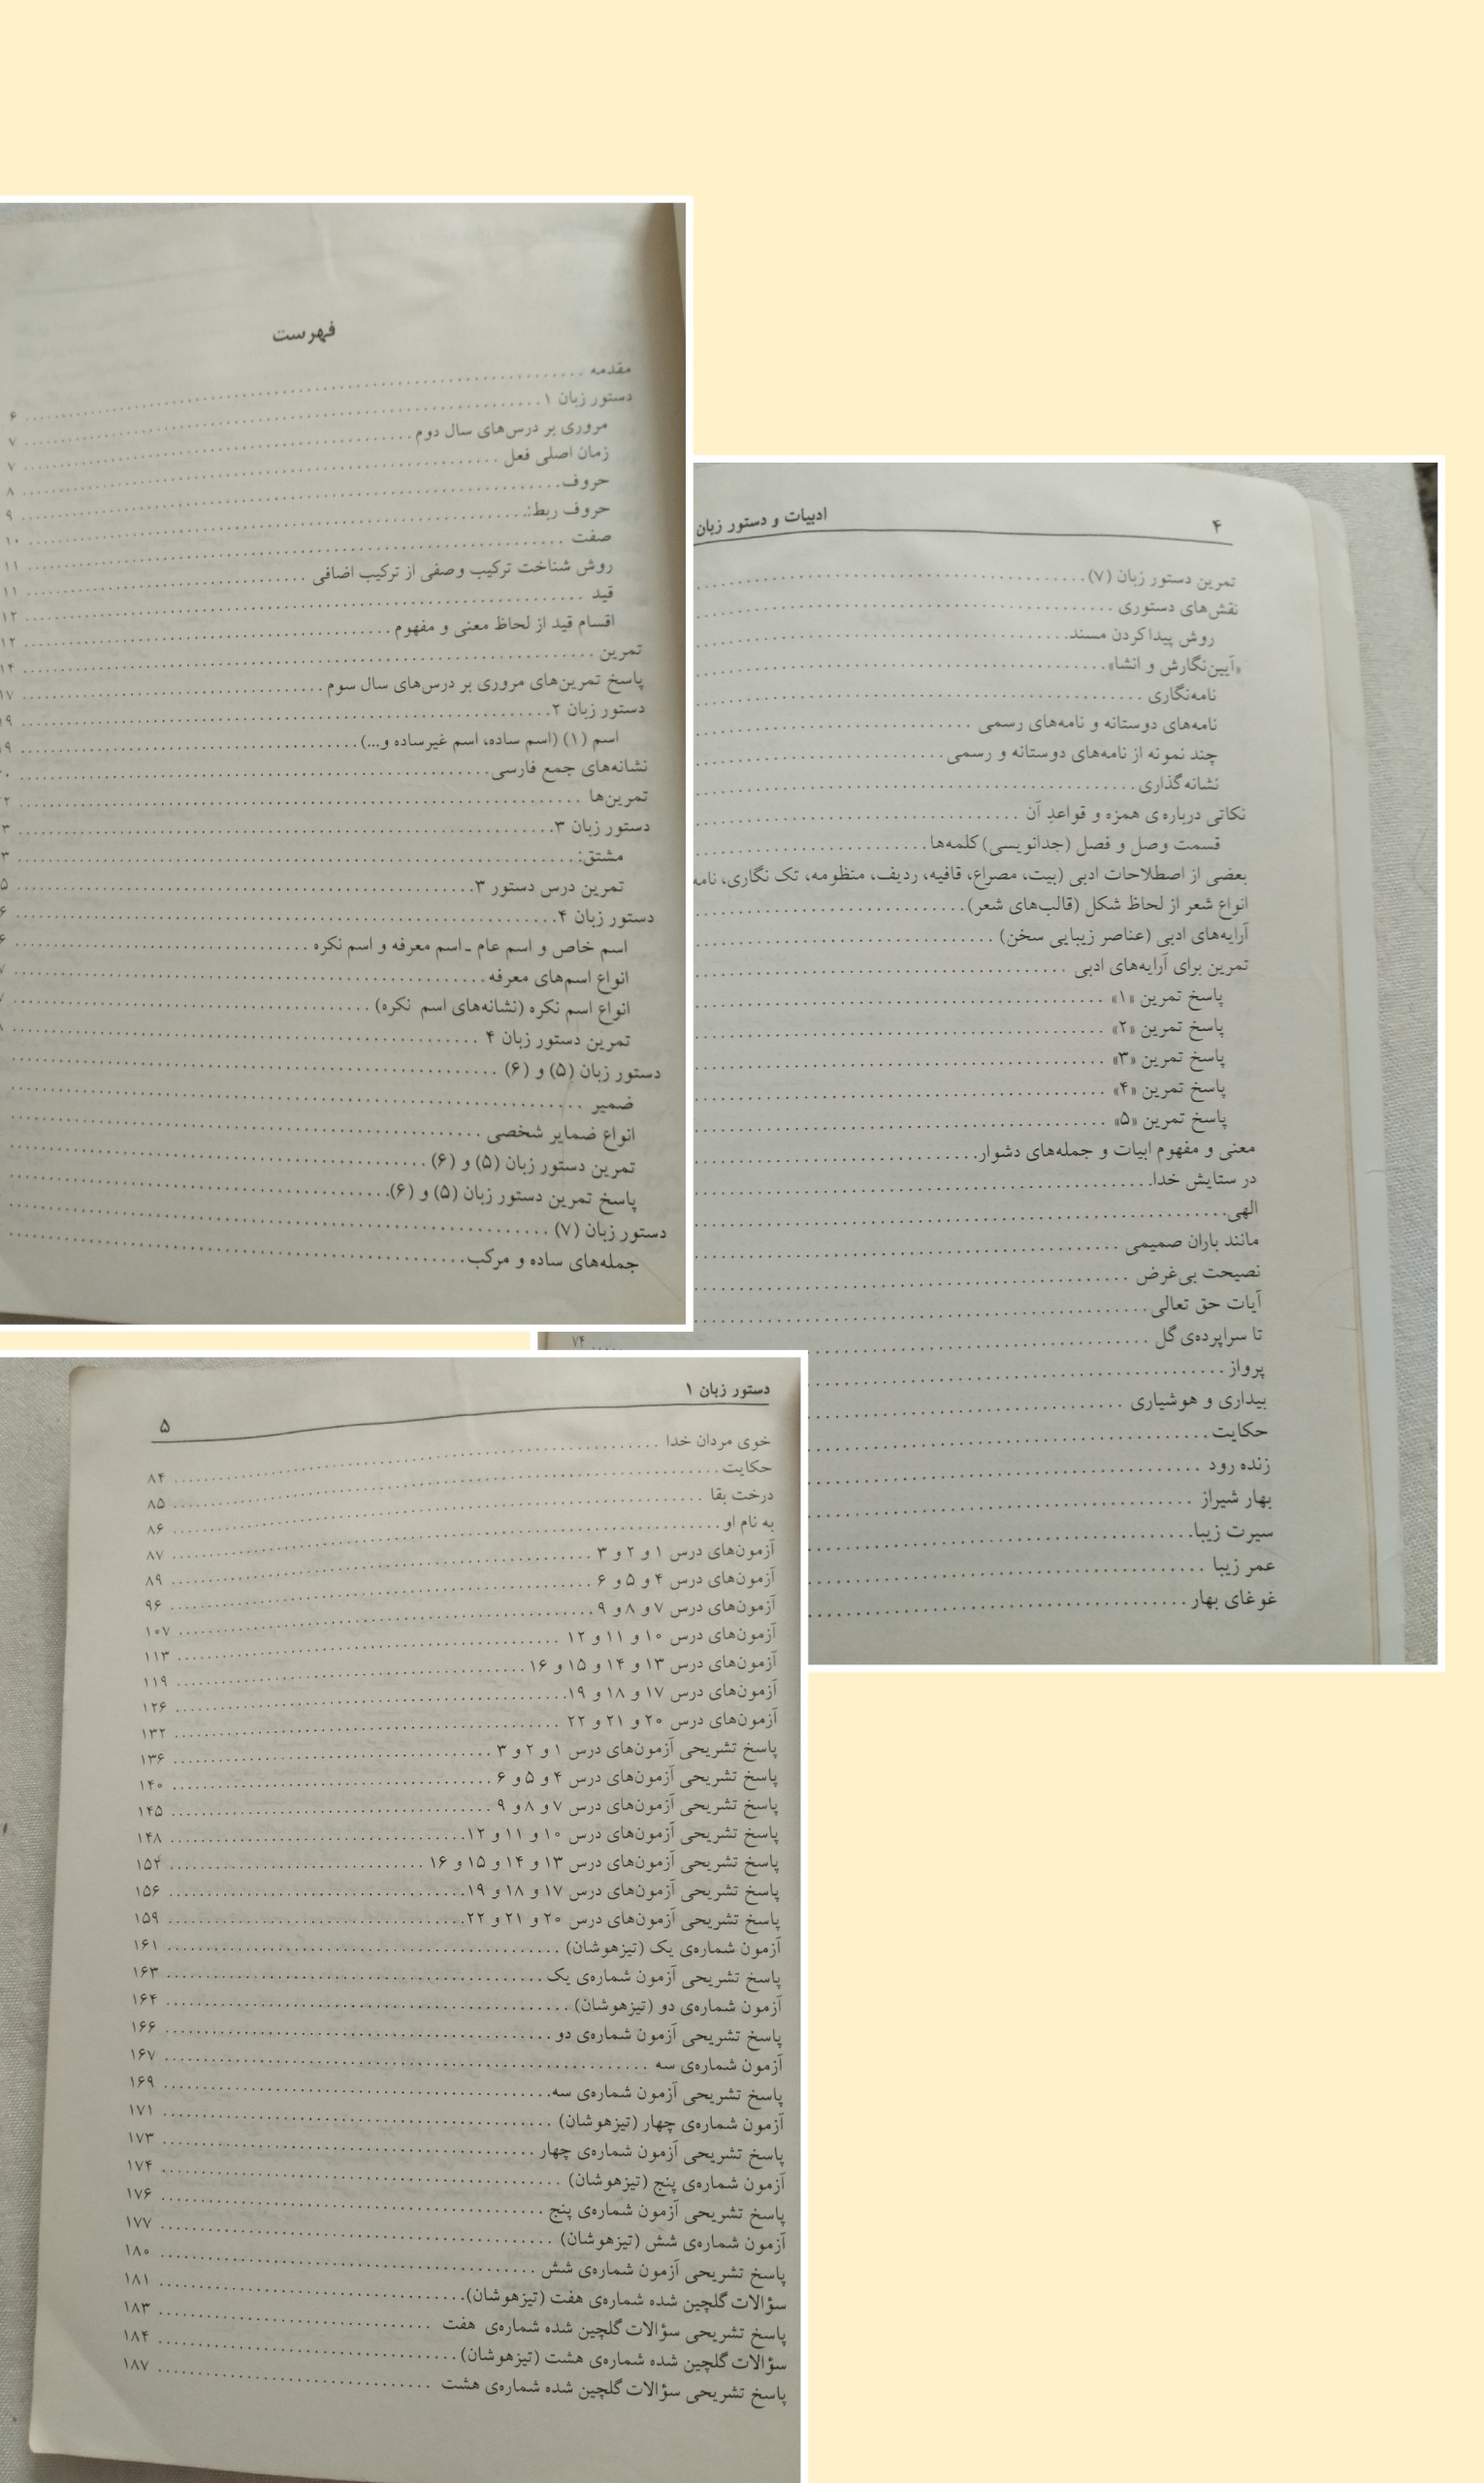 فهرست
مقدمه ........ ۶
دستور زبان ۱ ........ ۷
مروری بر درس‌های سال دوم ........ ۷
زمان اصلی فعل ........ ۸
حروف ........ ۹
حروف ربط: ........ ۱۰
صفت ........ ۱۱
روش شناخت ترکیب وصفی از ترکیب اضافی ........ ۱۱
قید ........ ۱۲
اقسام قید از لحاظ معنی و مفهوم ........ ۱۲
تمرین ........ ۱۴
پاسخ تمرین‌های مروری بر درس‌های سال سوم ........ ۱۷
دستور زبان ۲ ........ ۱۹
اسم (۱) (اسم ساده، اسم غیرساده و...) ........
نشانه‌های جمع فارسی ........
تمرین‌ها ........
دستور زبان ۳ ........
مشتق: ........
تمرین درس دستور ۳ ........
دستور زبان ۴ ........
اسم خاص و اسم عام ـ اسم معرفه و اسم نکره ........
انواع اسم‌های معرفه ........
انواع اسم نکره (نشانه‌های اسم نکره) ........
تمرین دستور زبان ۴ ........
دستور زبان (۵) و (۶) ........
ضمیر ........
انواع ضمایر شخصی ........
تمرین دستور زبان (۵) و (۶) ........
پاسخ تمرین دستور زبان (۵) و (۶) ........
دستور زبان (۷) ........
جمله‌های ساده و مرکب ........
۴ ادبیات و دستور زبان
تمرین دستور زبان (۷) ........
نقش‌های دستوری ........
روش پیدا کردن مسند ........
«آیین‌نگارش و انشا» ........
نامه‌نگاری ........
نامه‌های دوستانه و نامه‌های رسمی ........
چند نمونه از نامه‌های دوستانه و رسمی ........
نشانه‌گذاری ........
نکاتی درباره‌ی همزه و قواعدِ آن ........
قسمت وصل و فصل (جدانویسی) کلمه‌ها ........
بعضی از اصطلاحات ادبی (بیت، مصراع، قافیه، ردیف، منظومه، تک نگاری، نامه
انواع شعر از لحاظ شکل (قالب‌های شعر) ........
آرایه‌های ادبی (عناصر زیبایی سخن) ........
تمرین برای آرایه‌های ادبی ........
پاسخ تمرین «۱» ........
پاسخ تمرین «۲» ........
پاسخ تمرین «۳» ........
پاسخ تمرین «۴» ........
پاسخ تمرین «۵» ........
معنی و مفهوم ابیات و جمله‌های دشوار ........
در ستایش خدا ........
الهی ........
مانند باران صمیمی ........
نصیحت بی‌غرض ........
آیات حق تعالی ........
تا سراپرده‌ی گل ........ ۷۴
پرواز ........
بیداری و هوشیاری ........
حکایت ........
زنده رود ........
بهار شیراز ........
سیرت زیبا ........
عمر زیبا ........
غوغای بهار ........
دستور زبان ۱ ۵
خوی مردان خدا ........ ۸۴
حکایت ........ ۸۵
درخت بقا ........ ۸۶
به نام او ........ ۸۷
آزمون‌های درس ۱ و ۲ و ۳ ........ ۸۹
آزمون‌های درس ۴ و ۵ و ۶ ........ ۹۶
آزمون‌های درس ۷ و ۸ و ۹ ........ ۱۰۷
آزمون‌های درس ۱۰ و ۱۱ و ۱۲ ........ ۱۱۳
آزمون‌های درس ۱۳ و ۱۴ و ۱۵ و ۱۶ ........ ۱۱۹
آزمون‌های درس ۱۷ و ۱۸ و ۱۹ ........ ۱۲۶
آزمون‌های درس ۲۰ و ۲۱ و ۲۲ ........ ۱۳۲
پاسخ تشریحی آزمون‌های درس ۱ و ۲ و ۳ ........ ۱۳۶
پاسخ تشریحی آزمون‌های درس ۴ و ۵ و ۶ ........ ۱۴۰
پاسخ تشریحی آزمون‌های درس ۷ و ۸ و ۹ ........ ۱۴۵
پاسخ تشریحی آزمون‌های درس ۱۰ و ۱۱ و ۱۲ ........ ۱۴۸
پاسخ تشریحی آزمون‌های درس ۱۳ و ۱۴ و ۱۵ و ۱۶ ........ ۱۵۲
پاسخ تشریحی آزمون‌های درس ۱۷ و ۱۸ و ۱۹ ........ ۱۵۶
پاسخ تشریحی آزمون‌های درس ۲۰ و ۲۱ و ۲۲ ........ ۱۵۹
آزمون شماره‌ی یک (تیزهوشان) ........ ۱۶۱
پاسخ تشریحی آزمون شماره‌ی یک ........ ۱۶۳
آزمون شماره‌ی دو (تیزهوشان) ........ ۱۶۴
پاسخ تشریحی آزمون شماره‌ی دو ........ ۱۶۶
آزمون شماره‌ی سه ........ ۱۶۷
پاسخ تشریحی آزمون شماره‌ی سه ........ ۱۶۹
آزمون شماره‌ی چهار (تیزهوشان) ........ ۱۷۱
پاسخ تشریحی آزمون شماره‌ی چهار ........ ۱۷۳
آزمون شماره‌ی پنج (تیزهوشان) ........ ۱۷۴
پاسخ تشریحی آزمون شماره‌ی پنج ........ ۱۷۶
آزمون شماره‌ی شش (تیزهوشان) ........ ۱۷۷
پاسخ تشریحی آزمون شماره‌ی شش ........ ۱۸۰
سؤالات گلچین شده شماره‌ی هفت (تیزهوشان) ........ ۱۸۱
پاسخ تشریحی سؤالات گلچین شده شماره‌ی هفت ........ ۱۸۳
سؤالات گلچین شده شماره‌ی هشت (تیزهوشان) ........ ۱۸۴
پاسخ تشریحی سؤالات گلچین شده شماره‌ی هشت ........ ۱۸۷